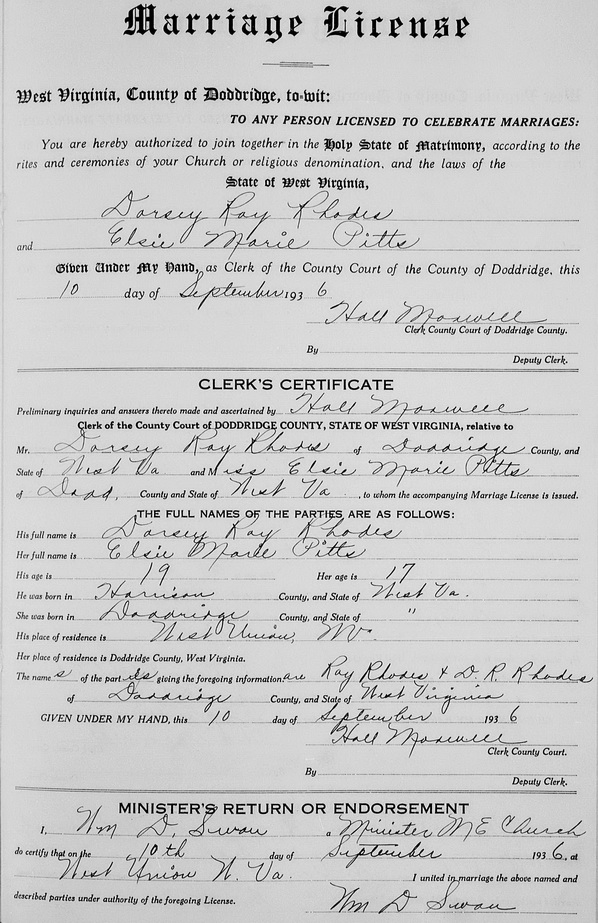 Marriage License
West Virginia, County of Doddridge, to-wit:
TO ANY PERSON LICENSED TO CELEBRATE MARRIAGES:
You are hereby authorized to join together in the Holy State of Matrimony, according to the
rites and ceremonies of your Church or religious denomination, and the laws of the
State of West Virginia,
Dorsey Ray Rhodes
and Elsie Marie Pitts
Given Under My Hand, as Clerk of the County Court of the County of Doddridge, this
10 day of September 1936
Hall Maxwell
Clerk County Court of Doddridge County.
By
Deputy Clerk.
CLERK'S CERTIFICATE
Preliminary inquiries and answers thereto made and ascertained by Hall Maxwell
Clerk of the County Court of DODDRIDGE COUNTY, STATE OF WEST VIRGINIA, relative to
Mr. Dorsey Ray Rhodes of Doddridge County, and
State of West Va and Miss Elsie Marie Pitts
of Dodd, County and State of West Va, to whom the accompanying Marriage License is issued.
THE FULL NAMES OF THE PARTIES ARE AS FOLLOWS:
His full name is Dorsey Ray Rhodes
Her full name is Elsie Marie Pitts
His age is 19 Her age is 17
He was born in Harrison County, and State of West Va.
She was born in Doddridge County, and State of "
His place of residence is West Union, WVa.
Her place of residence is Doddridge County, West Virginia.
The names of the parties giving the foregoing information are Ray Rhodes & D. R. Rhodes
of Doddridge County, and State of West Virginia
GIVEN UNDER MY HAND, this 10 day of September 1936
Hall Maxwell
Clerk County Court.
By
Deputy Clerk.
MINISTER'S RETURN OR ENDORSEMENT
I, Wm D. Swan a Minister M E Church
do certify that on the 10th day of September 1936, at
West Union W. Va. I united in marriage the above named and
described parties under authority of the foregoing License.
Wm D Swan